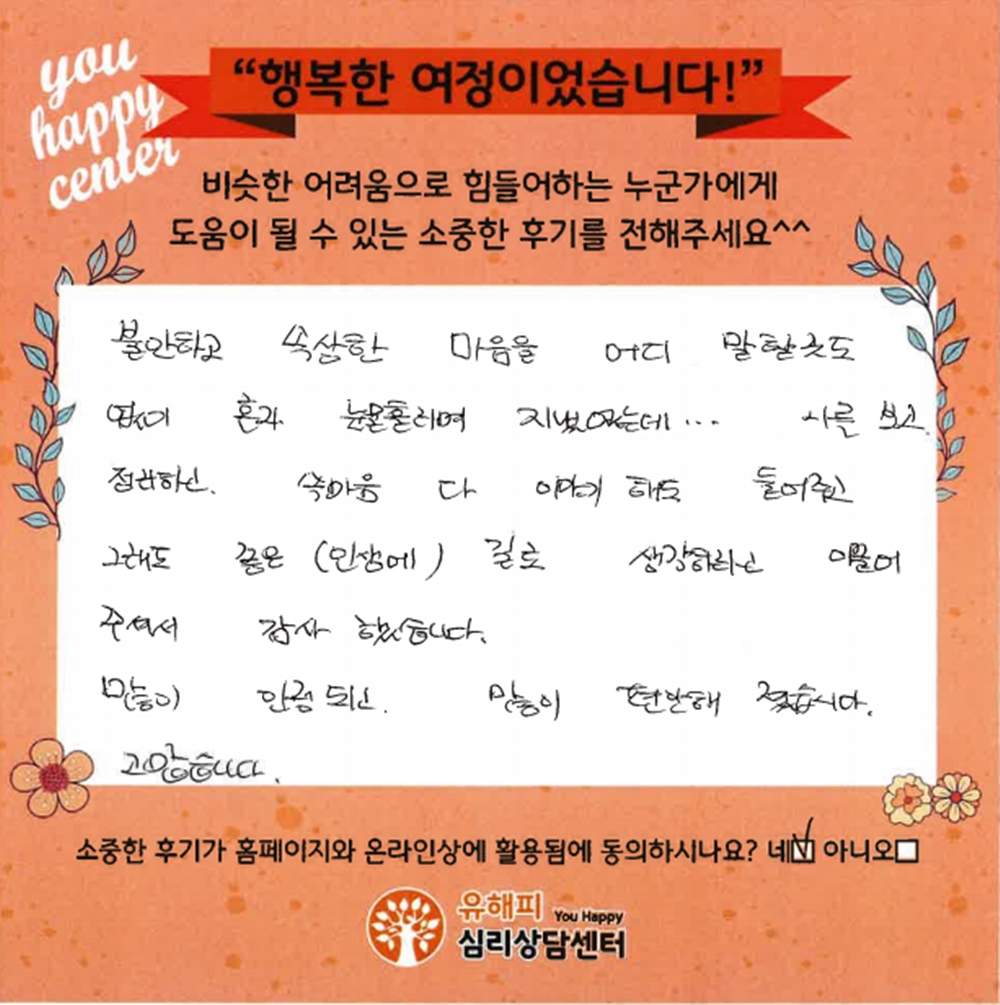 you
happy
center
“행복한 여정이었습니다!”
비슷한 어려움으로 힘들어하는 누군가에게
도움이 될 수 있는 소중한 후기를 전해주세요^^
불안하고 속상한 마음을 어디 말할곳도
없이 혼자 눈물흘리며 지냈었는데... 사를 보고.
점하고. 속마음 다 이야기 해도 들어주고
그래도 좋은 (인생에) 길로 생각하라고 이끌어
주셔서 감사 했습니다.
많이 안정 되고. 많이 편안해 졌습니다.
고맙습니다.
소중한 후기가 홈페이지와 온라인상에 활용됨에 동의하시나요? 네☑ 아니오☐
유해피 You Happy
심리상담센터